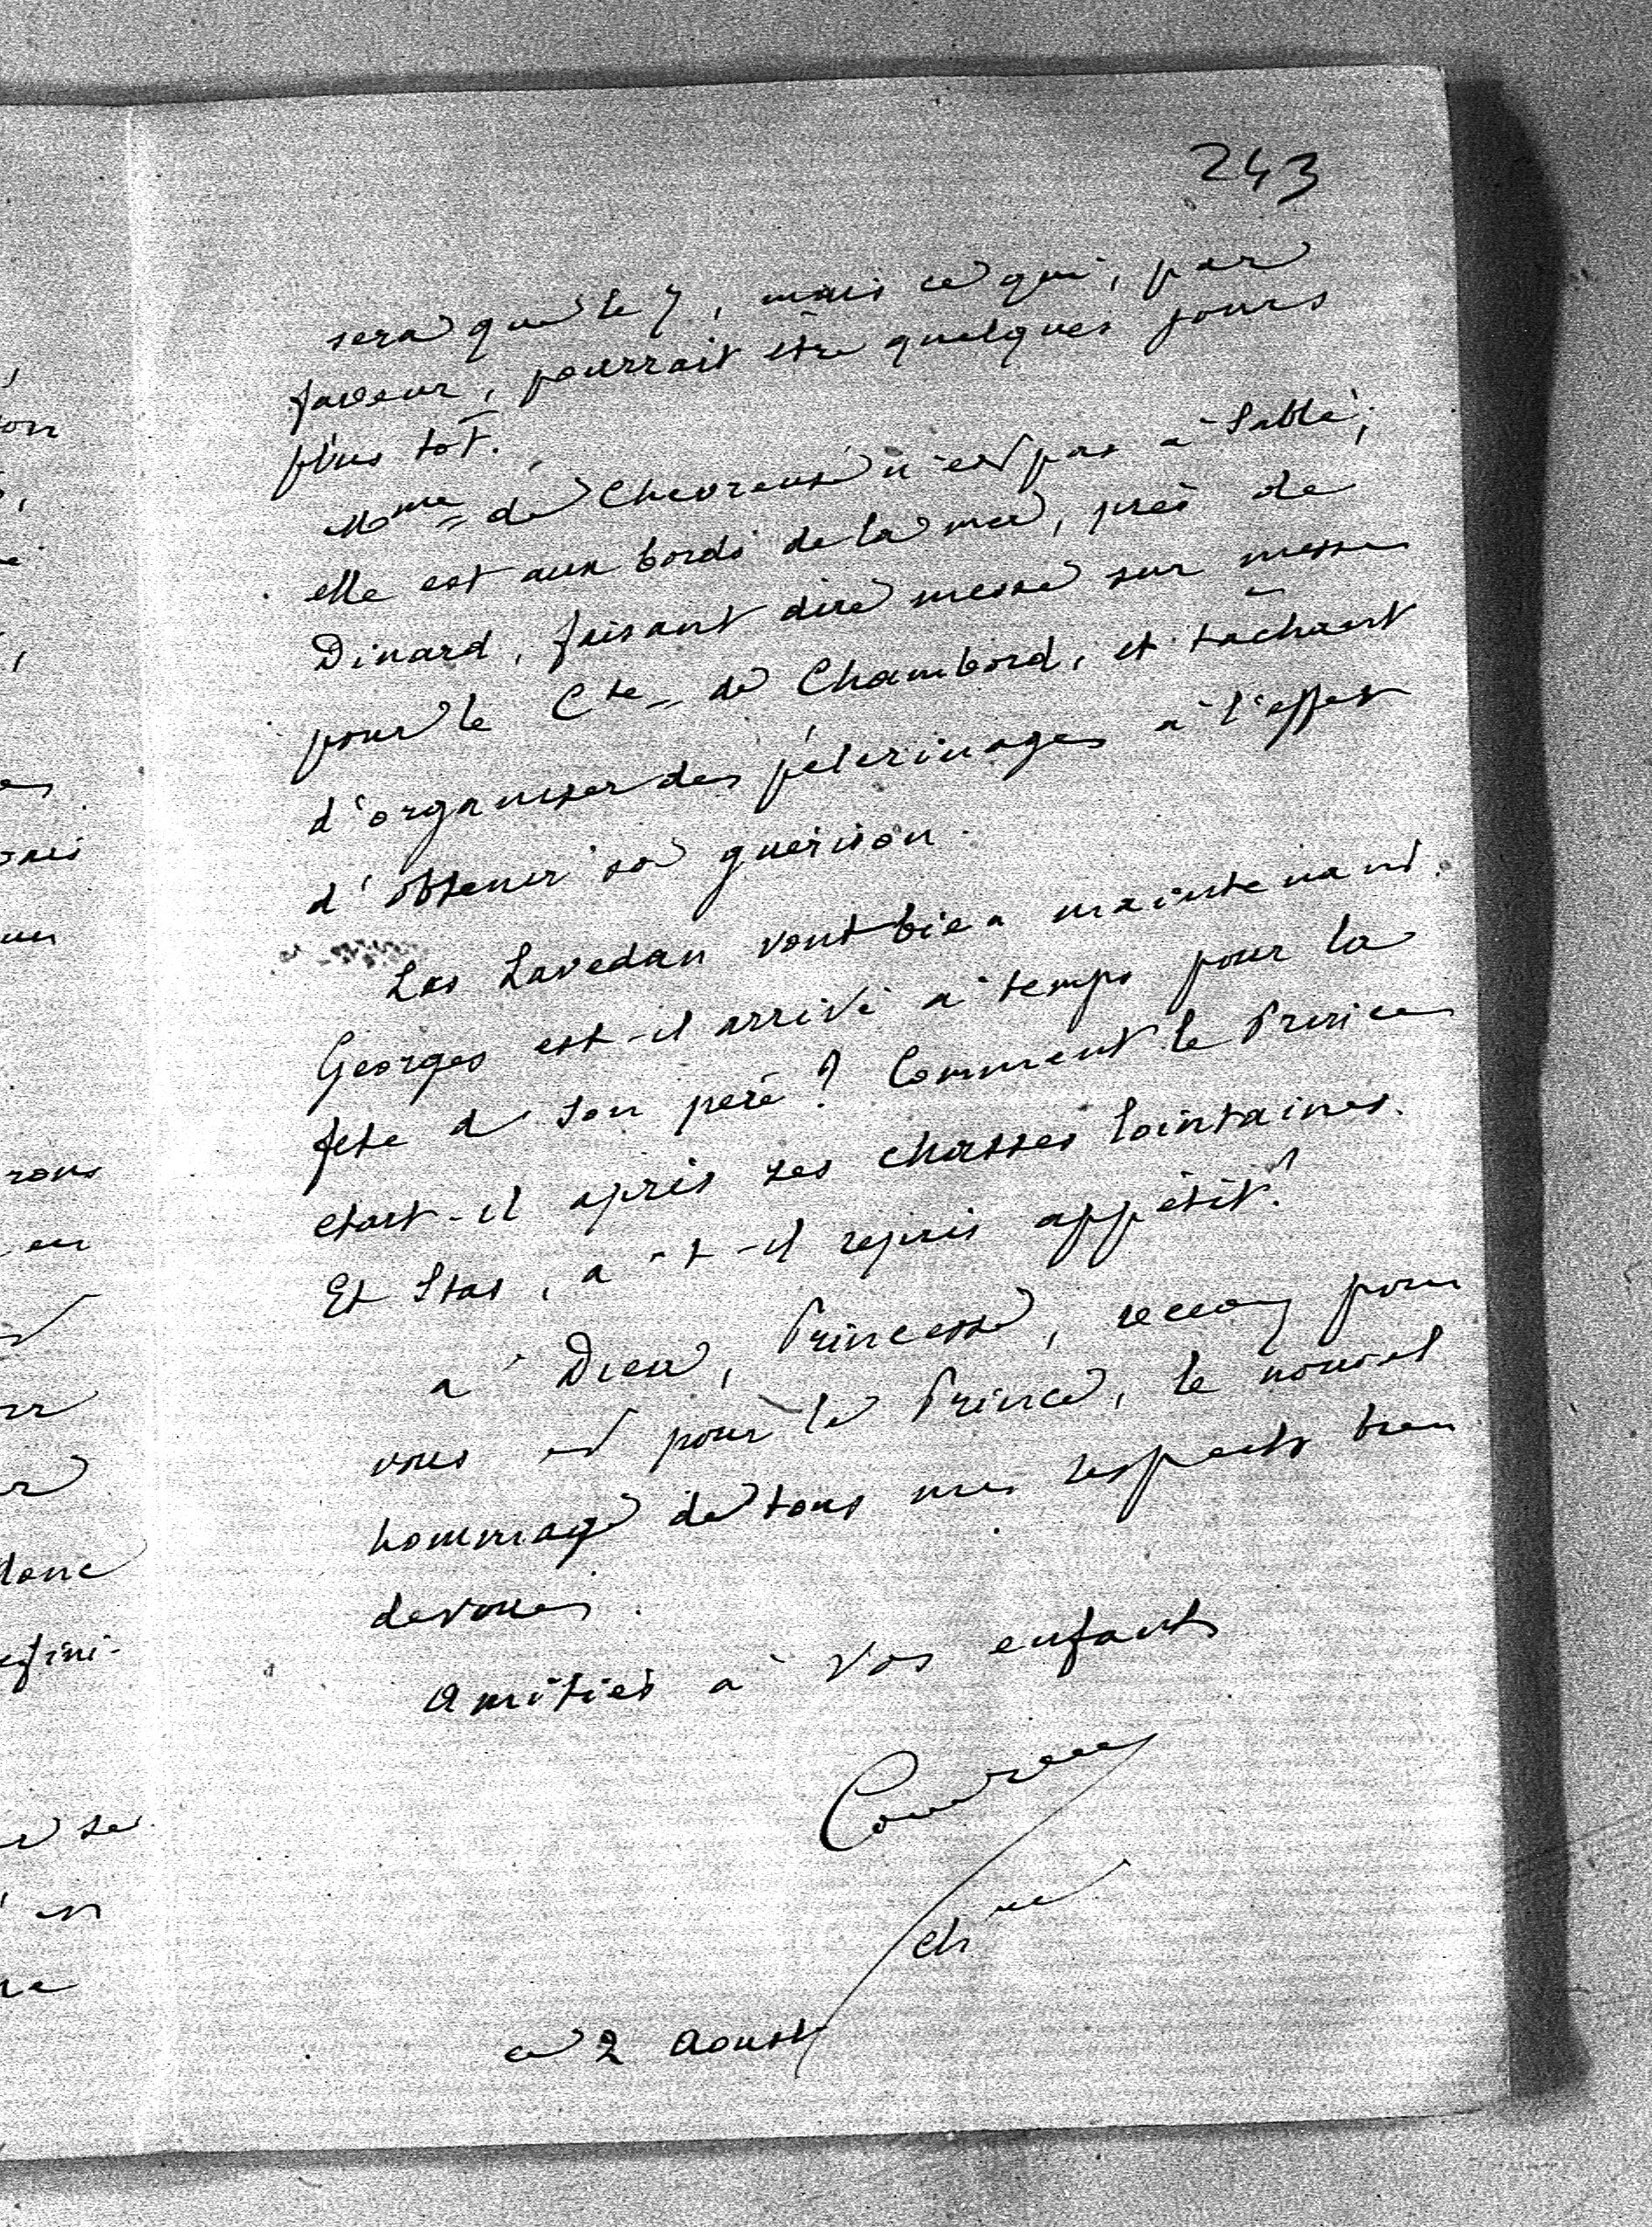 243
sera que le 7, mais ce qui, par
faveur, pourrait être quelques jours
plus tôt.
Mme de Chevreuse n'est pas à Sablé;
elle est aux bords de la mer, près de
Dinard, faisant dire messe sur messe
pour le Cte de Chambord, et tâchant
d'organiser des pélerinages à l'effet
d'obtenir sa guérison.
Les Lavedan vont bien maintenant.
Georges est-il arrivé à temps pour la
fete de son père? Comment le Prince
etait-il après ses chasses lointaines.
Et Stas, a-t-il repris appétit?
à Dieu, Princesse, recevez pour
vous et pour le Prince, le nouvel
hommage de tous mes respects bien
devoués.
Amitiés à vos enfants
ce 2 Aoust
on
donc
rous